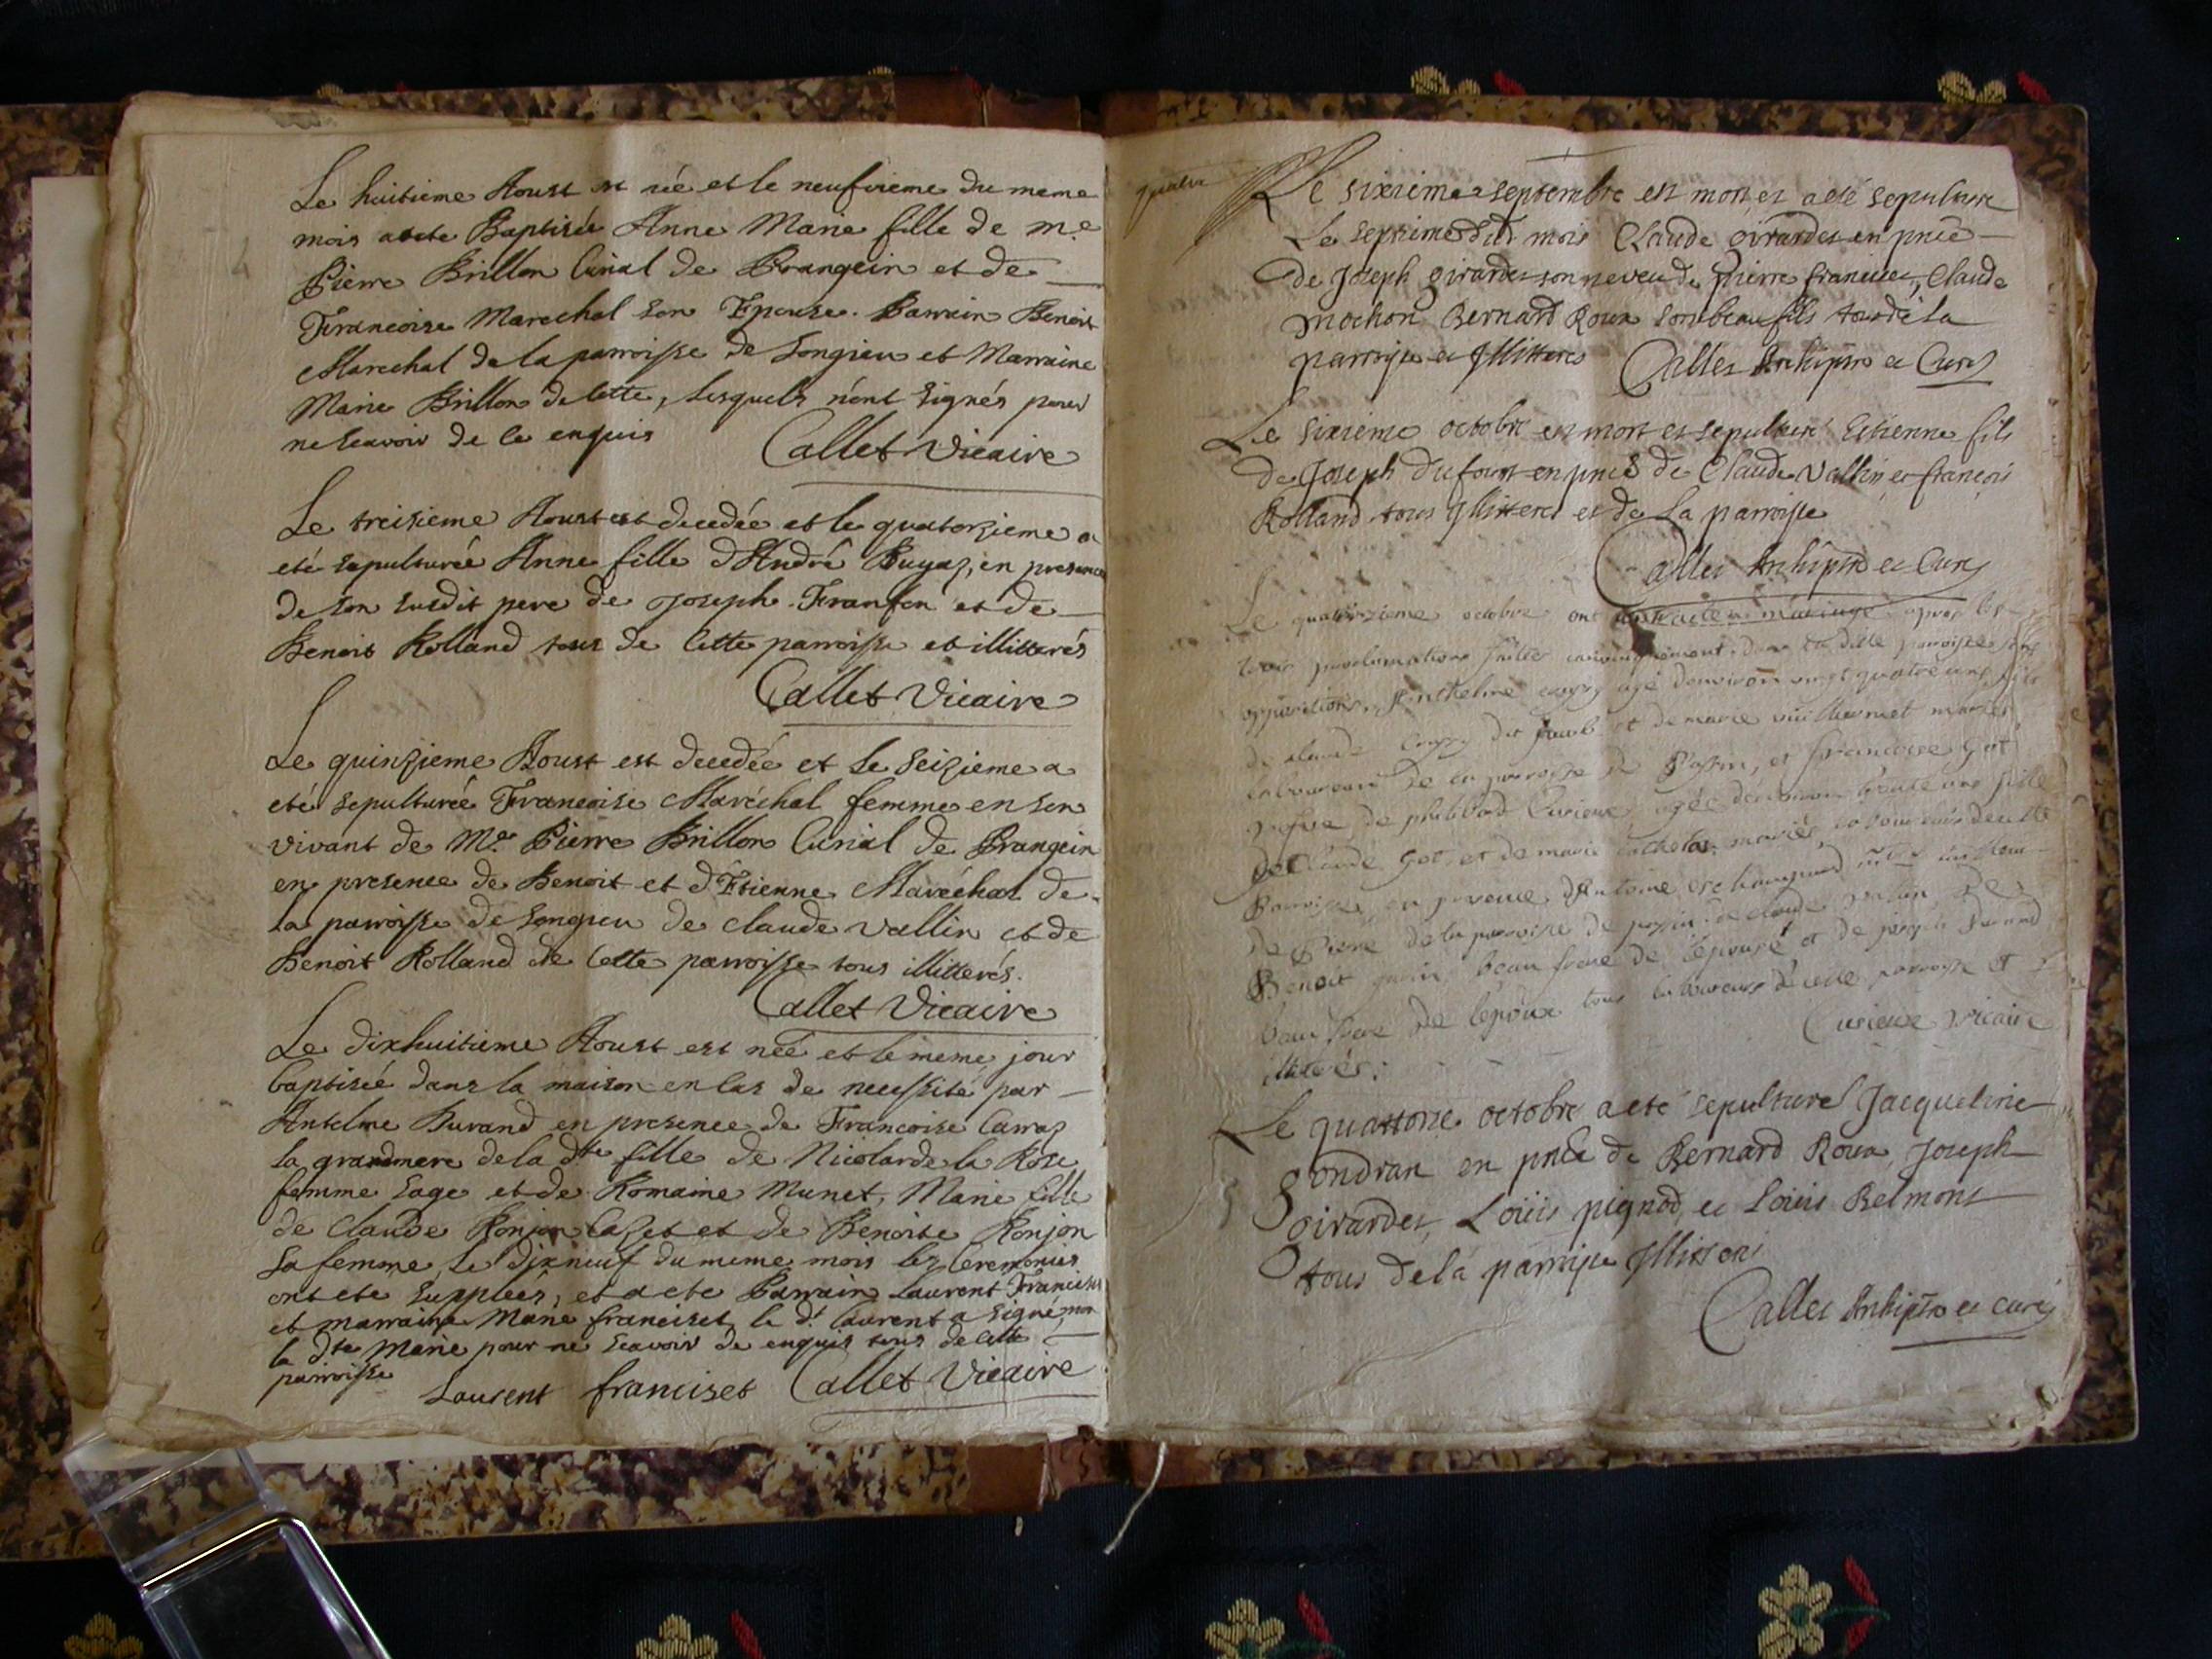 Le huitieme Aoust est née et le neufvieme du meme
mois a été Baptisée Anne Marie fille de m.e
Pierre Brillon Curial de Brangein et de
Francoise Marechal son Epouse. Parrain Benoit
Marechal de la parroisse de Songieu et Marraine
Marie Brillon de Cette, Lesquels n'ont signés pour
ne Scavoir de ce enquis Callet Vicaire
Le treizieme Aoust est decedée et le quatorzieme a
eté sepulturée Anne fille d'André Buyaz, en presence
de son susdit pere de Joseph et de
Benoit Rolland tous de Cette parroisse et illitterés
Callet Vicaire
Le quinzieme Aoust est decedée et le seizieme a
eté sepulturée Francoise Maréchal femme en son
vivant de M.e Pierre Brillon Curial de Brangein
en presence de Benoit et d'Etienne Maréchal de
la parroisse de Songieu de Claude Vallin et de
Benoit Rolland de Cette parroisse tous illitterés.
Callet Vicaire
Le dixhuitieme Aoust est née et le meme jour
baptisée dans la maison en Cas de necessité par
Antelme Durand en presence de Francoise Carraz
la grandmere de la dte fille de Nicolarde la Rose
femme sage et de Romaine Munet, Marie fille
de Claude Bonjon et de Benoite Bonjon
sa femme, le dixneuf du meme mois les Ceremonies
ont eté supplées, et a eté Parrain Laurent Franciset
et marraine Marie franciset le dt Laurent a signé non
la dte Marie pour ne Scavoir de enquis tous de Cette
parroisse
Laurent franciset Callet Vicaire
quatre
Le sixieme septembre est mort et a eté sepulturé
Le septieme dud mois Claude Girardet en pnce
de Joseph girardet son neveu de pierre franciset, Claude
mochon Bernard Roux son beau fils tous de La
parroisse et Illitterés Callet Archiptre et Curé
Le sixieme octobre est mort et sepulturé Estienne fils
de Joseph Dufour en pnce de Claude Vallin et francois
Rolland tous Illitterés et de La parroisse
Callet Archiptre et Curé
Le quatorzieme octobre ont contracté mariage apres les
trois proclamations faittes dans parroisse sans
opposition, Anthelme agé d'environ vingt quatre ans fils
de claude et de marie mariés
laboureurs de la parroisse de et francoise Got
vefve de philibert Curieux agée d'environ trente ans fille
de Claude Got et de marie mariés, laboureurs de cette
Parroisse, en presence d'Antoine
de Pierre de la parroisse de de claude vallin, de
Benoit beau frere de l'epouse et de joseph durand
beau frere de l'epoux tous laboureurs de cette parroisse et
illiterés: Curieux vicaire
Le quattorse octobre a eté sepulturé Jacqueline
Gondran en pnce de Bernard Roux, Joseph
Girardet, Loüis pignod, et Loüis Belmont
tous de la parroisse Illitterés
Callet Archiptre et curé